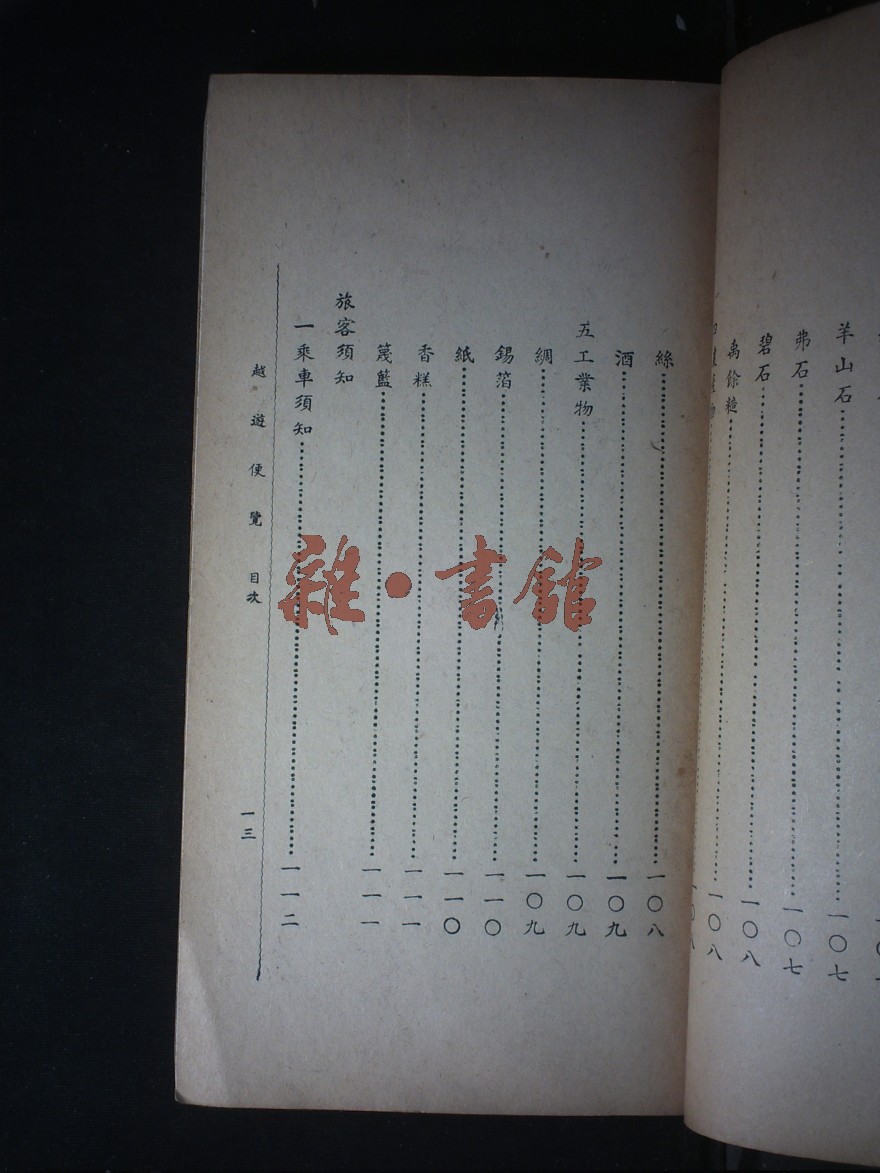 羊山石 一〇七
弗石 一〇七
碧石 一〇八
禹餘糧 一〇八
絲 一〇八
酒 一〇九
五工業物 一〇九
綢 一〇九
錫箔 一一〇
紙 一一〇
香糕 一一一
篾籃 一一一
旅客須知
一乘車須知 一一二
越遊便覽 目次
一三
雜·書館